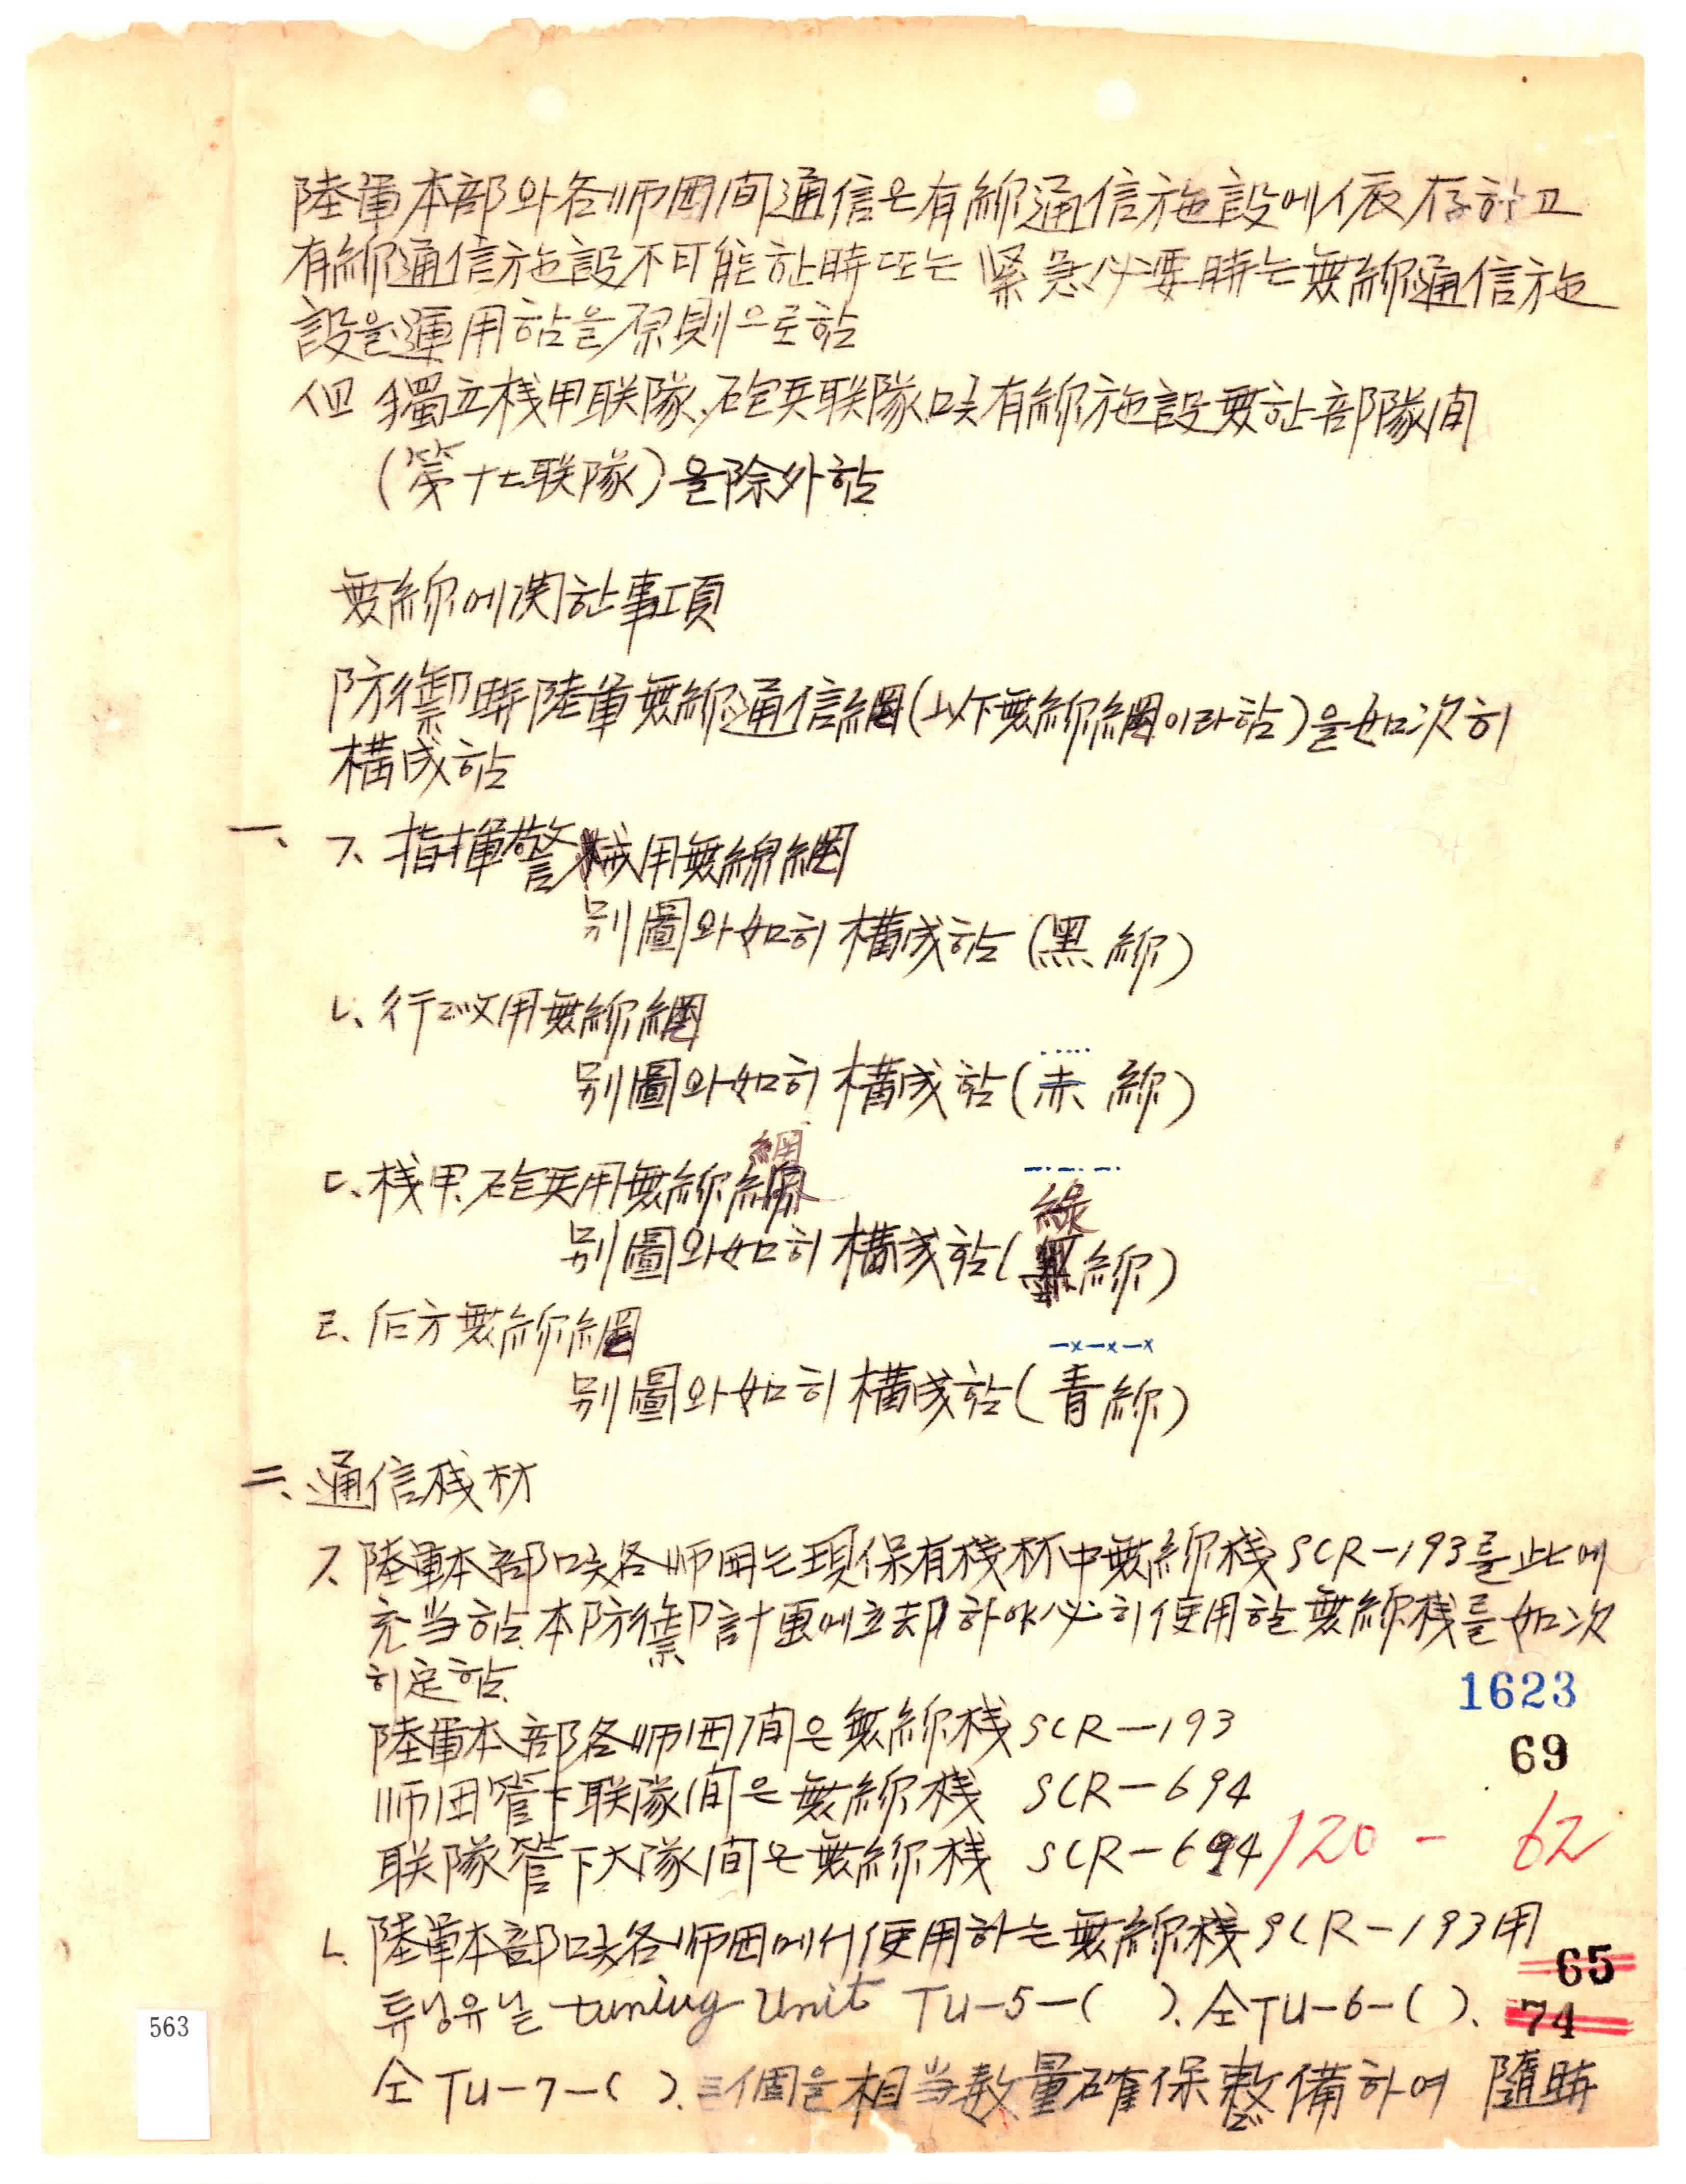 陸軍本部와各師團間通信은有線通信施設에依存하고
有線通信施設不可能한時또는 緊急必要時는無線通信施
設을運用함을原則으로함
但 獨立機甲联隊、砲兵联隊및有線施設無한部隊間
(第十七联隊)을除外함
無線에関한事項
防禦時陸軍無線通信網(以下無線網이라함)을如次히
構成함
一、ㄱ、指揮警械用無線網
別圖와如히構成함(黑線)
ㄴ、行政用無線網
別圖와如히構成함(赤線)
網
ㄷ、機甲、砲兵用無線
綠
別圖와如히構成함(線)
ㄹ、后方無線網
別圖와如히構成함(青線)
二、通信機材
ㄱ、陸軍本部및各師団는現保有機材中無線機SCR-193를此에
充当함.本防禦計画에立却하야必히使用할無線機를如次
히定함.
1623
陸軍本部各師団间은無線機SCR-193
69
師団管下联隊间은無線機 SCR-694
联隊管下大隊间은無線機 SCR-694
120 - 62
ㄴ、陸軍本部및各師団에서使用하는無線機SCR-193用
65
튜닝유닐 tuning Unit TU-5-( )、仝TU-6-( )、
74
563
仝TU-7-( )、三個을相当數量確保整備하여 隨時